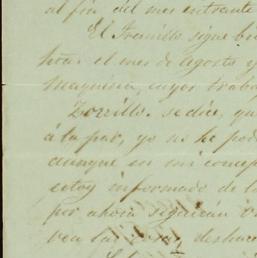 al fin del mes entrante
El Tranvillo sigue bi
hoa. el mes de agosto y
maquina, cuyos traba
Zorrillo. se dice, qu
á la par, yo no he pod
aunque en mi concep
estoy informado de l
por ahora seguirán